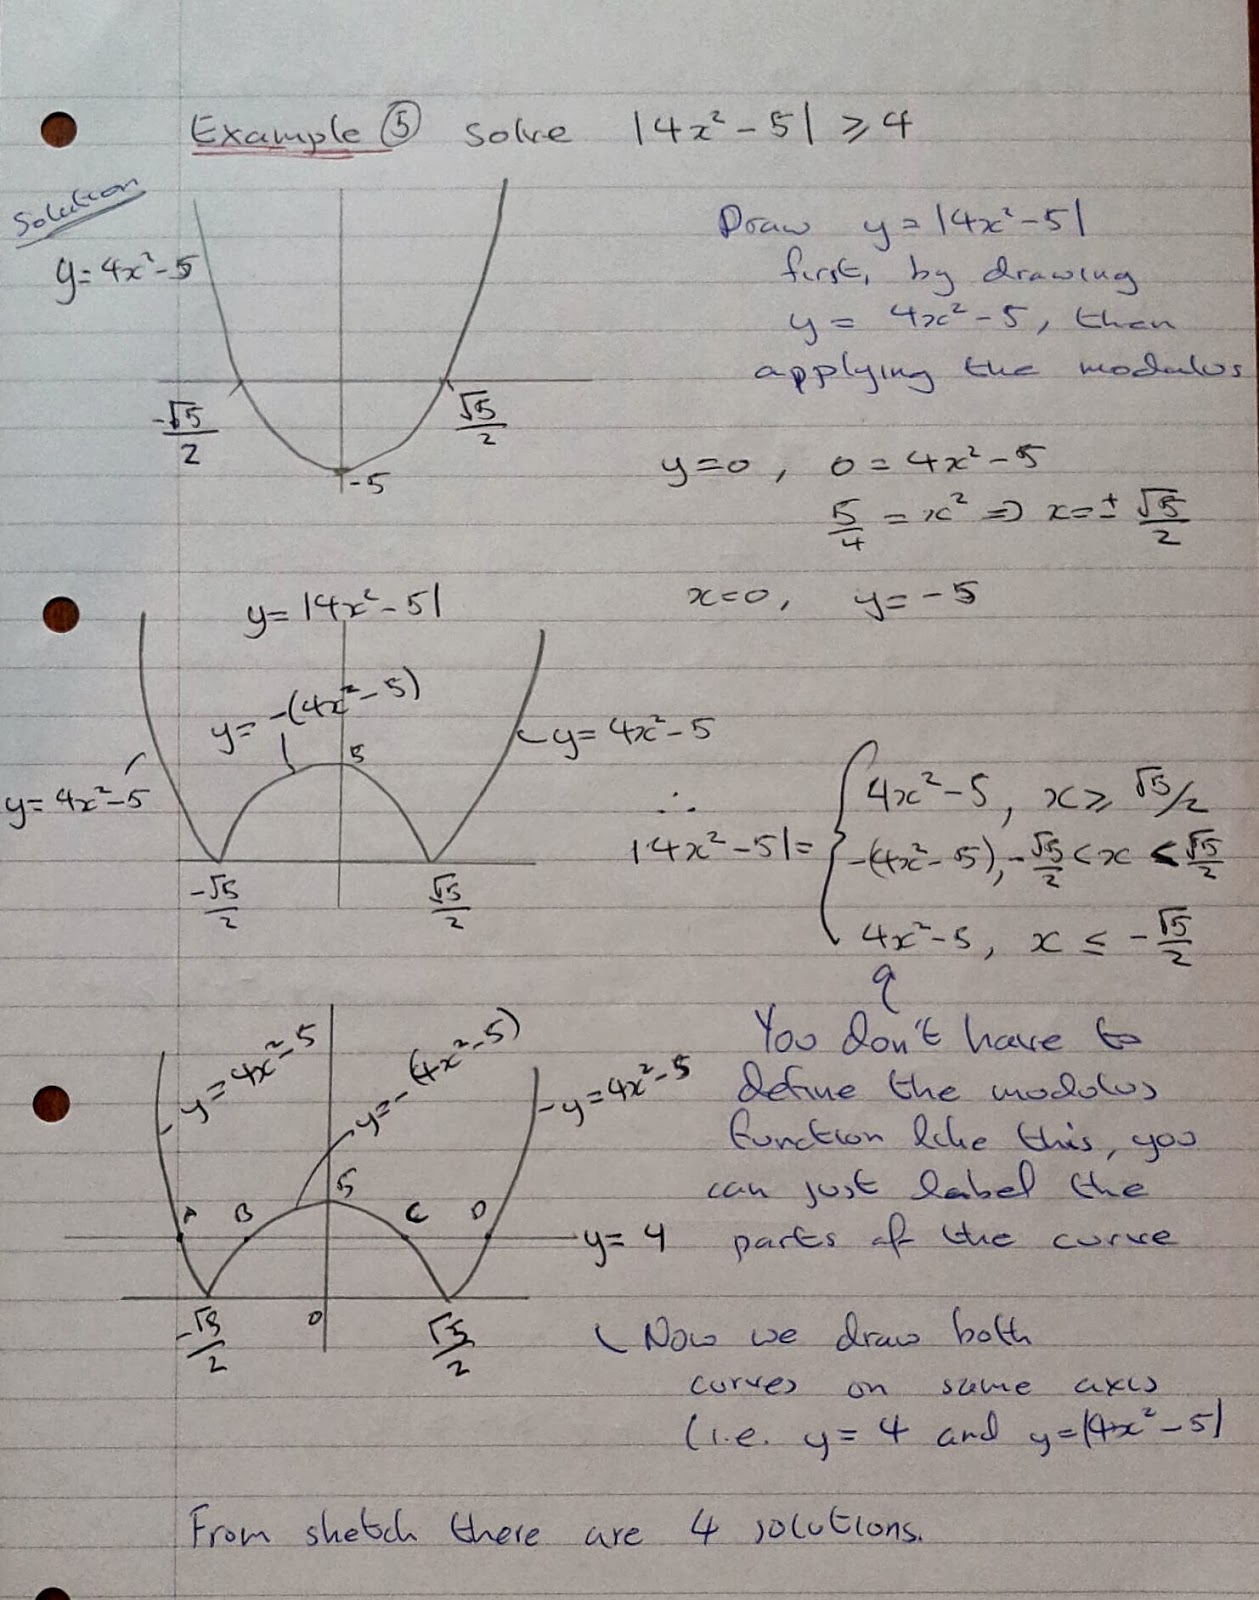 Example ⑤ solve |4x² - 5| ≥ 4
Solution
y = 4x² - 5
Draw y = |4x² - 5|
first, by drawing
y = 4x² - 5, then
applying the modulus
-√5/2
√5/2
-5
y=0, 0 = 4x² - 5
5/4 = x² ⇒ x = ± √5/2
x=0, y = -5
y = |4x² - 5|
y = -(4x² - 5)
5
y = 4x² - 5
y = 4x² - 5
-√5/2
√5/2
∴
|4x² - 5| = { 4x² - 5, x ≥ √5/2
-(4x² - 5), -√5/2 < x < √5/2
4x² - 5, x ≤ -√5/2
You don't have to
define the modulus
function like this, you
can just label the
parts of the curve
y = 4x² - 5
y = -(4x² - 5)
y = 4x² - 5
5
A B C D
y = 4
-√5/2
0
√5/2
Now we draw both
curves on same axis
(i.e. y = 4 and y = |4x² - 5|
From sketch there are 4 solutions.